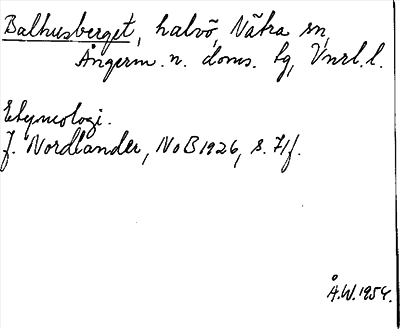 Balhusberget, halvö, Nätra sn,
Ångerm. n. doms. tg, Vnrl. l.
Etymologi.
J. Nordlander, NoB 1926, s. 71f.
Å.W. 1954.